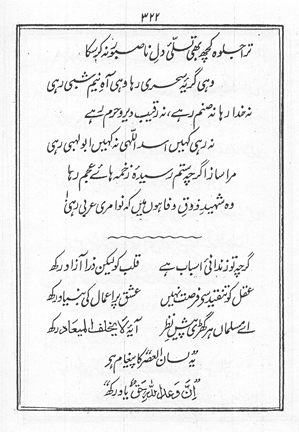 ۳۲۲
ترا جلوہ کچھ بھی تسلیِ دلِ ناصبور نہ کر سکا
وہی گریۂ سحری رہا وہی آہِ نیم شبی رہی
نہ خدا رہا نہ صنم رہے، نہ رقیبِ دیر و حرم رہے
نہ رہی کہیں اسد اللہی نہ کہیں ابولہبی رہی
مرا ساز اگرچہ ستم رسیدۂ زخمہ ہائے عجم رہا
وہ شہیدِ ذوقِ وفا ہوں میں کہ نوا مری عربی رہی
گرچہ تو زندانیِ اسباب ہے قلب کو لیکن ذرا آزاد رکھ
عقل کو تنقید سے فرصت نہیں عشق پر اعمال کی بنیاد رکھ
اے مسلماں ہر گھڑی پیشِ نظر آیۂ لا یخلف المیعاد رکھ
یہ لسان العصر کا پیغام ہے
"اِنَّ وعد اللہ حق یاد رکھ"